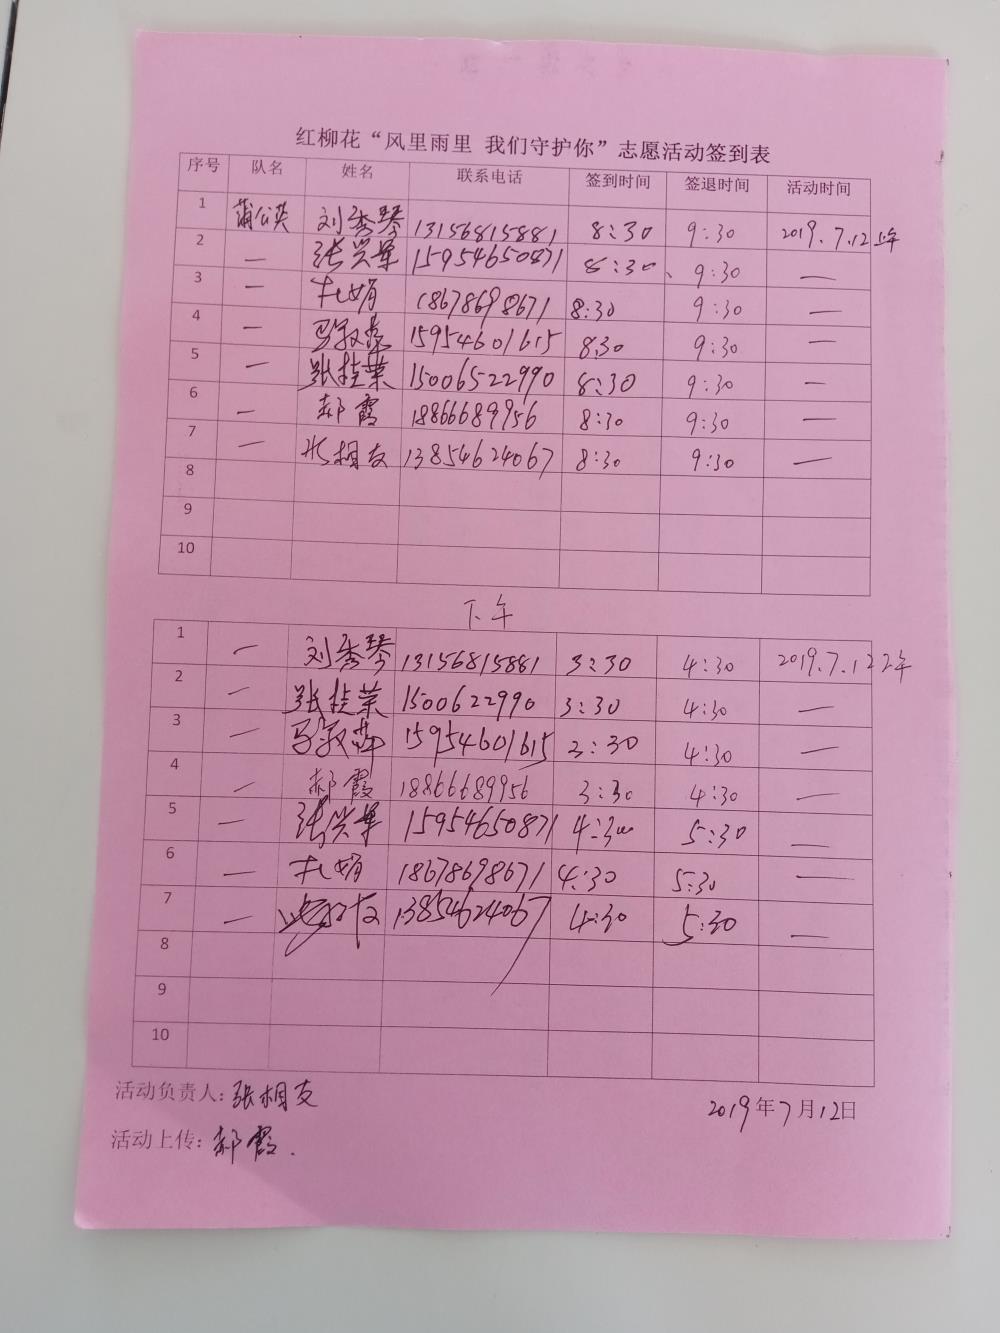 红柳花“风里雨里 我们守护你”志愿活动签到表
序号 队名 姓名 联系电话 签到时间 签退时间 活动时间
1 蒲公英 刘秀琴 13156815881 8:30 9:30 2019.7.12上午
2 — 张兴军 15954650871 8:30、 9:30 —
3 — 扎娟 18678698671 8:30 9:30 —
4 — 马敏 15954601615 8:30 9:30 —
5 — 张桂荣 15006522990 8:30 9:30 —
6 — 郝霞 18866689956 8:30 9:30 —
7 — 张相友 13854624067 8:30 9:30 —
8
9
10
下午
1 — 刘秀琴 13156815881 3:30 4:30 2019.7.12
2 — 张桂荣 1500622990 3:30 4:30 —
3 — 马敏 15954601615 3:30 4:30 —
4 — 郝霞 18866689956 3:30 4:30 —
5 — 张兴军 15954650871 4:30 5:30 —
6 — 扎娟 18678698671 4:30 5:30 —
7 — 13854624067 4:30 5:30 —
8
9
10
活动负责人：张相友
2019年7月12日
活动上传：郝霞.